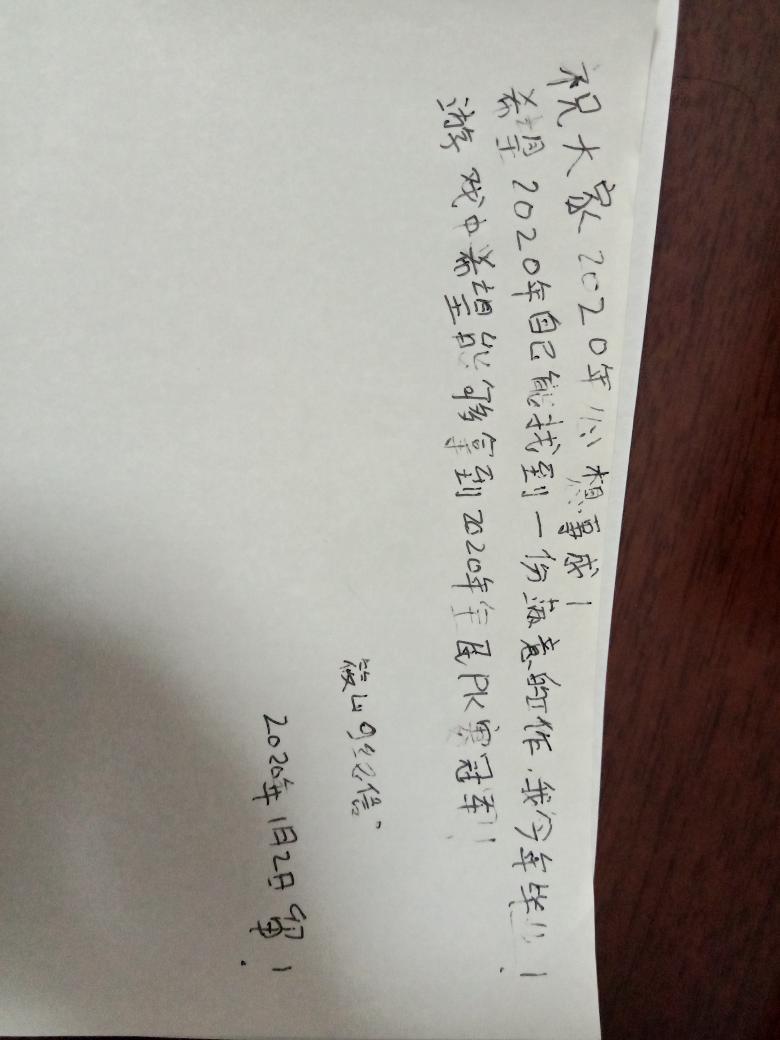 祝大家2020年心想事成!
希望2020年自己能找到一份满意的工作,我今年毕业!
游戏中希望能够拿到2020年全民PK赛冠军!
2020年1月2日留!